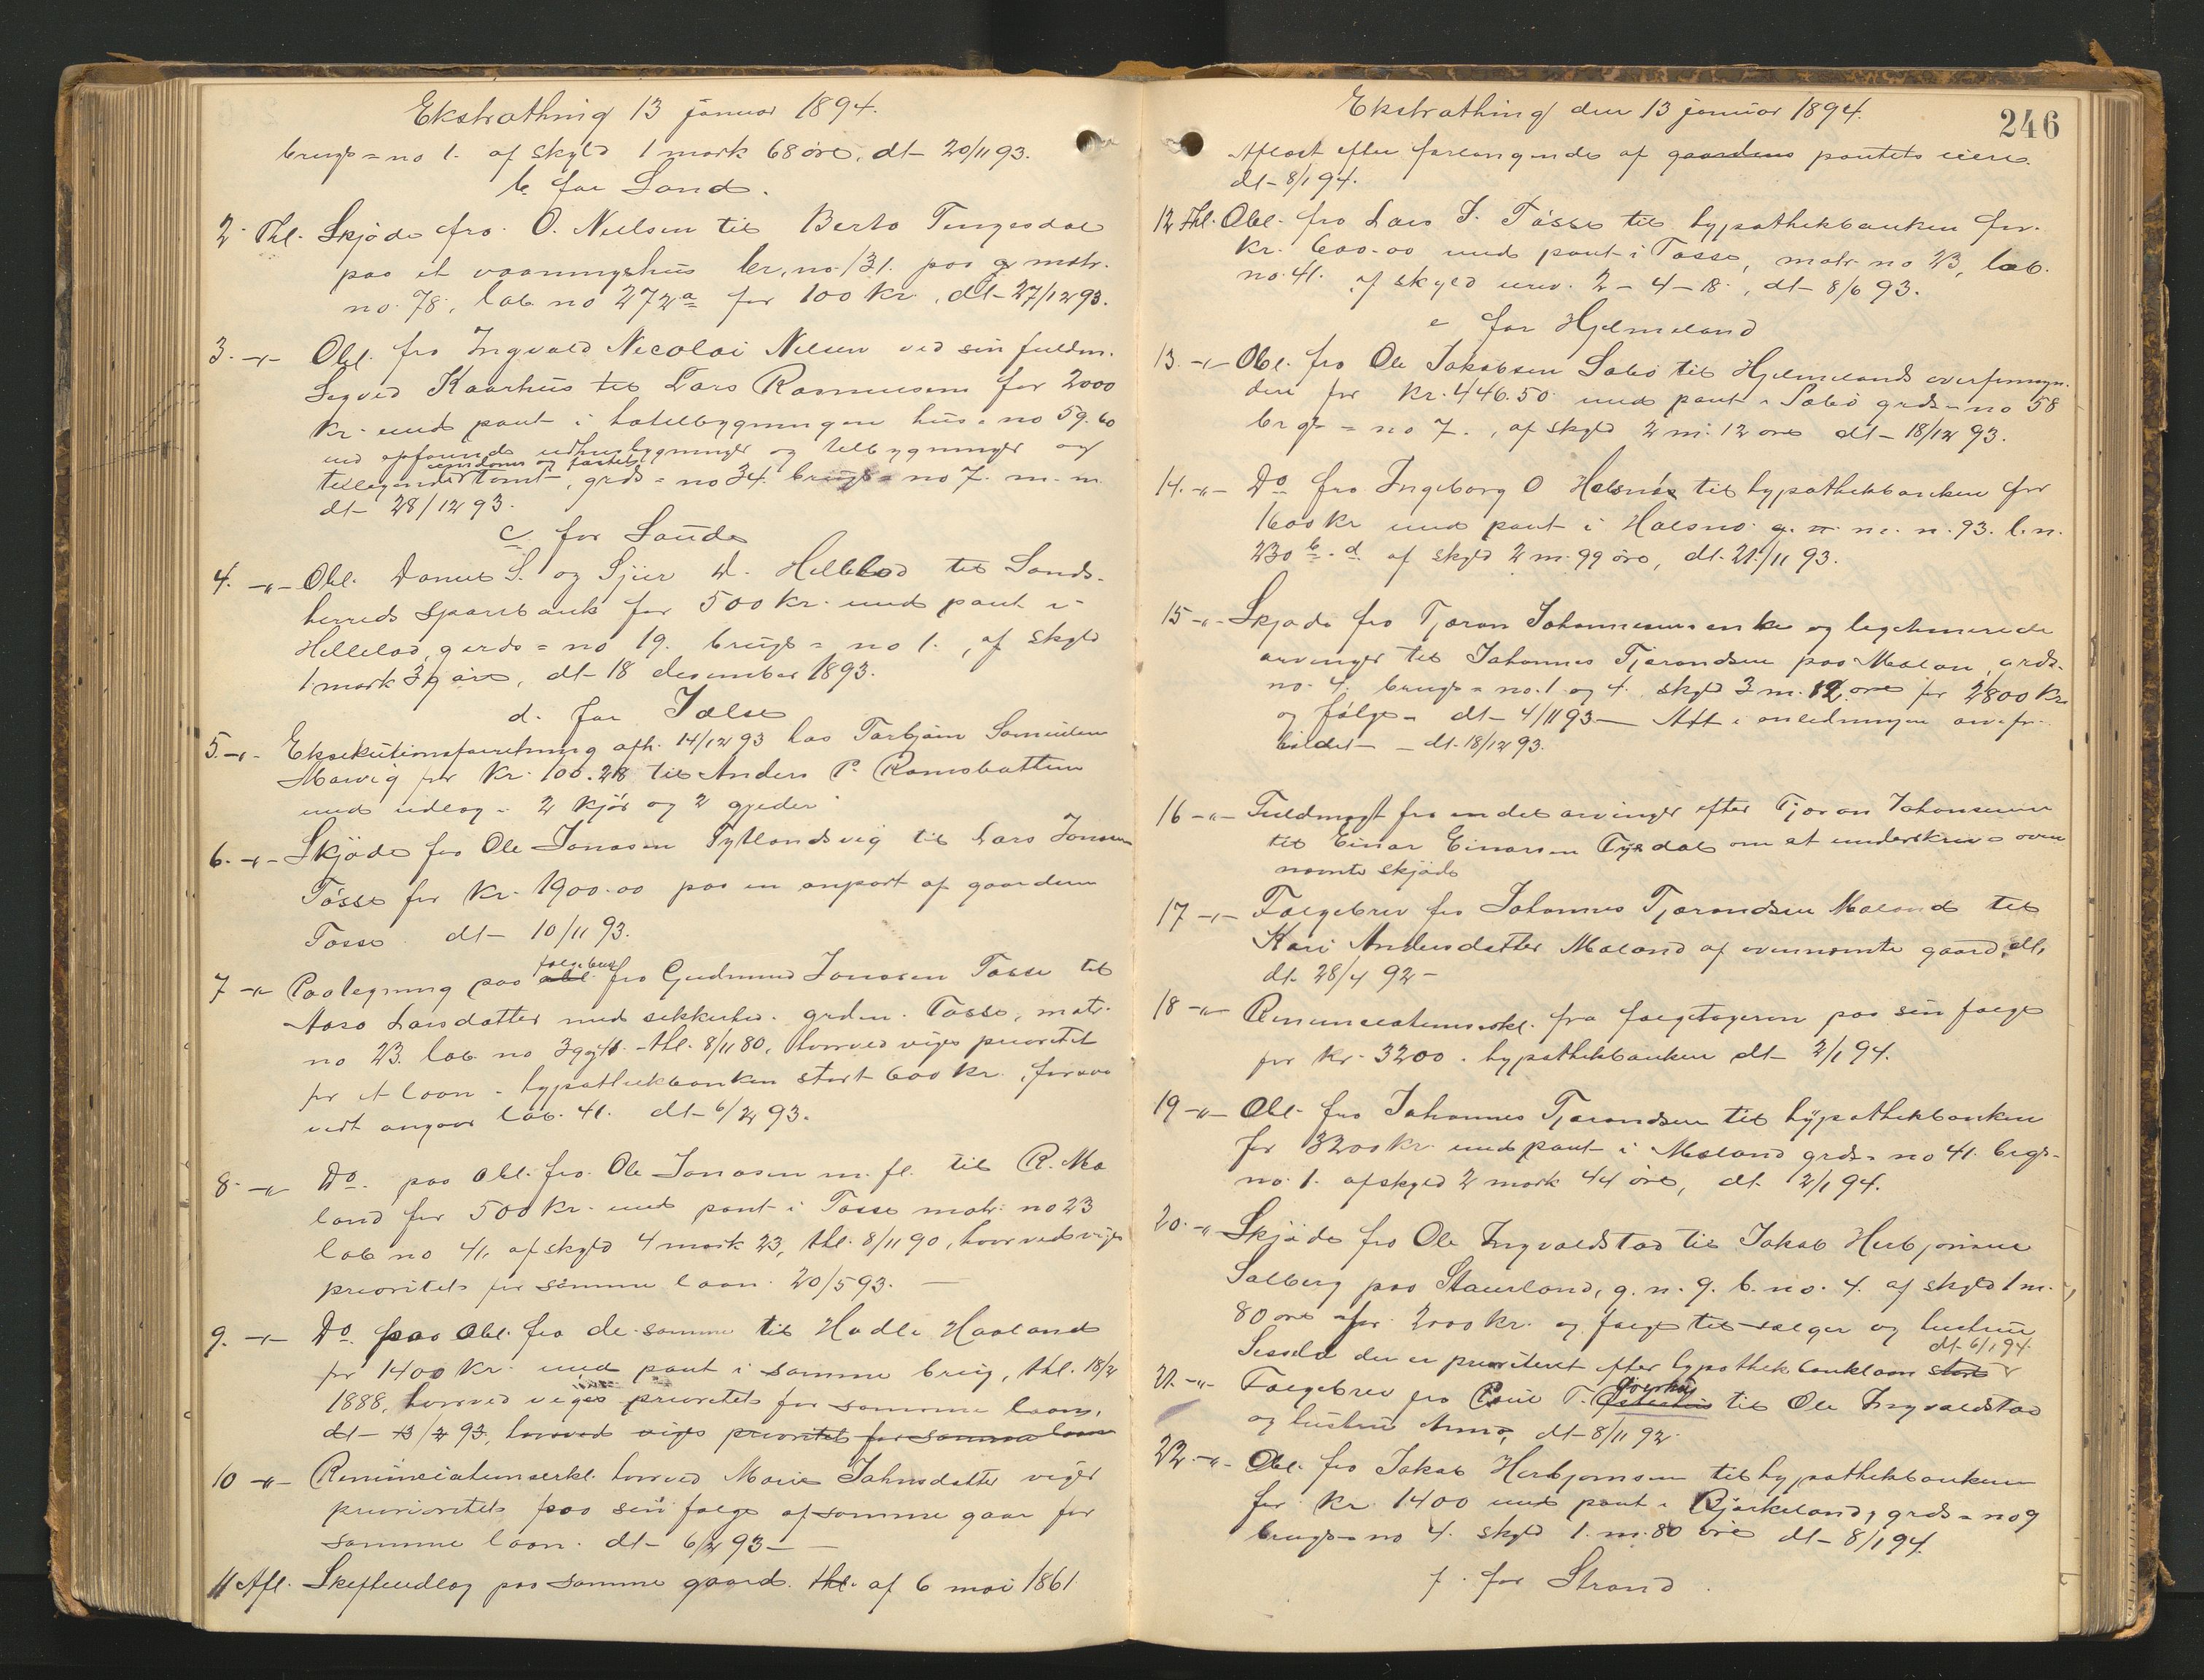 Ekstrathing 13 januar 1894.
brugs=no 1. af skyld 1 mark 68 øre, dt- 20/11 93.
b. for Sand.
2. Thl. Skjøde fra O. Nielsen til Berta Tengesdal
paa et vaaningshus br. no 131. paa g matr.
no. 78, løb no 272a for 100 kr., dt- 27/12 93.
3. -"- Obl. fra Ingvald Nicolai Nilsen ved sin fuldm.
Sigved Kaarhus til Lars Rasmussen for 2000
kr. med pant i hotelbygningen hus=no 59.60
med opførende udhusbygninger og tilbygninger og
eiendoms og fæstet
tilliggende tomt, grds=no 34. brugs=no 7. m.m.
dt- 28/12 93.
c for Saude
4. -"- Obl. Daniel S. og Sjur D. Hellelad til Sands-
herreds sparebank for 500 kr. med pant i
Hellelad, gards=no 19. brugs=no 1., af skyld
1 mark 39 øre, dt- 18 desember 1893.
d. for Jelse
5. -"- Eksekutionsforretning afh. 14/12 93 hos Torbjørn Samuelsen
Marvig for kr. 100.28 til Anders P. Ramsbottem
med udlæg i 2 kjør og 2 gjeder
6. -"- Skjøde fra Ole Jonasen Tytlandsvig til Lars Jonasen
Tøsse for kr. 1900.00 paa en anpart af gaarden
Tøsse dt- 10/11 93.
7 -"- Paategning paa obl. folgebrev fra Gudmund Jonassen Tøsse til
Aasa Larsdatter med sikkerhed i grden. Tøsse, matr.
no 23. løb no 39 thl. 8/11 80, hvorved viges prioritet
for et laan i hypothekbanken stort 600 kr., forsaa
vidt angaar løb. 41. dt- 6/2 93.
8. -"- Do. paa Obl. fra Ole Jonasen m. fl. til R. Mæ
land for 500 kr. med pant i Tøsse matr. no 23
løb no 41, af skyld 4 mark 23, thl. 8/11 90, hvorved viges
prioritet for samme laan. 20/5 93. —
9. -"- Do. paa Obl. fra de samme til Hadle Haaland
for 1400 kr. med pant i samme brug, thl. 18/2
1888, hvorved viges prioritet for samme laan,
dt- 13/2 93, hvorved viges prioritet for samme laan
10 -"- Renunciationserkl. hvorved Marie Johnsdatter viger
prioritet paa sin folge af samme gaar for
samme laan. dt- 6/2 93 —
11 Afl. Skifteudlæg paa samme gaard. thl. af 6 mai 1861
Ekstrathing den 13 januar 1894. 246
Aflæst efter forlangende af gaardens pantets eiere.
dt- 8/1 94.
12 Thl. Obl. fra Lars J. Tøsse til hypothekbanken for
kr. 600.00 med pant i Tøsse, matr. no 23, løb.
no 41. af skyld urev. 2 - 4 - 18., dt- 8/6 93.
e for Hjelmeland
13. -"- Obl. fra Ole Jakobsen Sæbø til Hjelmelands overformyn-
deri for kr. 446.50 med pant i Sæbø grds=no 58
brgs=no 7., af skyld 2 m. 12 øre dt- 18/12 93.
14. -"- Do fra Ingeborg O Halsnøe til hypothekbanken for
1600 kr med pant i Halsnø g. m. n. 93. l.n.
230 b.d. af skyld 2 m. 99 øre, dt. 21./11 93.
15 -"- Skjøde fra Tjæran Johannesens enke og legitimerede
arvinger til Johannes Tjærandsen paa Mælan, grds-
no. 4. brugs=no. 1 og 4. skyld 3 m. 12 øre for 2800 kr.
og følge- dt- 4/11 93 — Att i anledningen
— dt- 18/12 93.
16 -"- Fuldmagt fra endel arvinger efter Tjæran Johansen
til Einar Einarsen Tysdal om at underskrive oven
nævnte skjøde
17 -"- Folgebrev fra Johannes Tjærandsen Mæland til
Kari Andersdatter Mæland af ovennævnte gaard.
dt. 28/4 92 —
18 -"- Renunciationserkl. fra folgetageren paa sin folge
for kr. 3200 i hypothekbanken dt- 2/1 94.
19 -"- Obl. fra Johannes Tjærandsen til hypothekbanken
for 3200 kr. med pant i Mæland grds=no 41. brgs-
no. 1. af skyld 2 mark 44 øre, dt. 2/1 94.
20. -"- Skjøde fra Ole Ingvaldstad til Jakob Herbjørnsen
Solberg paa Staurland, g. n. 9. b. no. 4. af skyld 1 m.
80 øre for 2000 kr. og folge til sælger og hustru
dt- 6/1 94.
Sesselia der er prioriteret efter hypothekbanklaan stort
21. -"- Folgebrev fra Poul T. til Ole Ingvaldstad
og hustru Anna, dt- 8/11 92.
22. -"- Obl. fra Jakob Herbjørnsen til hypothekbanken
for kr. 1400 med pant i Bjørkeland, grds=no 9
brugs=no 4. skyld 1. m. 80 øre dt- 8/1 94.
f. for Strand.